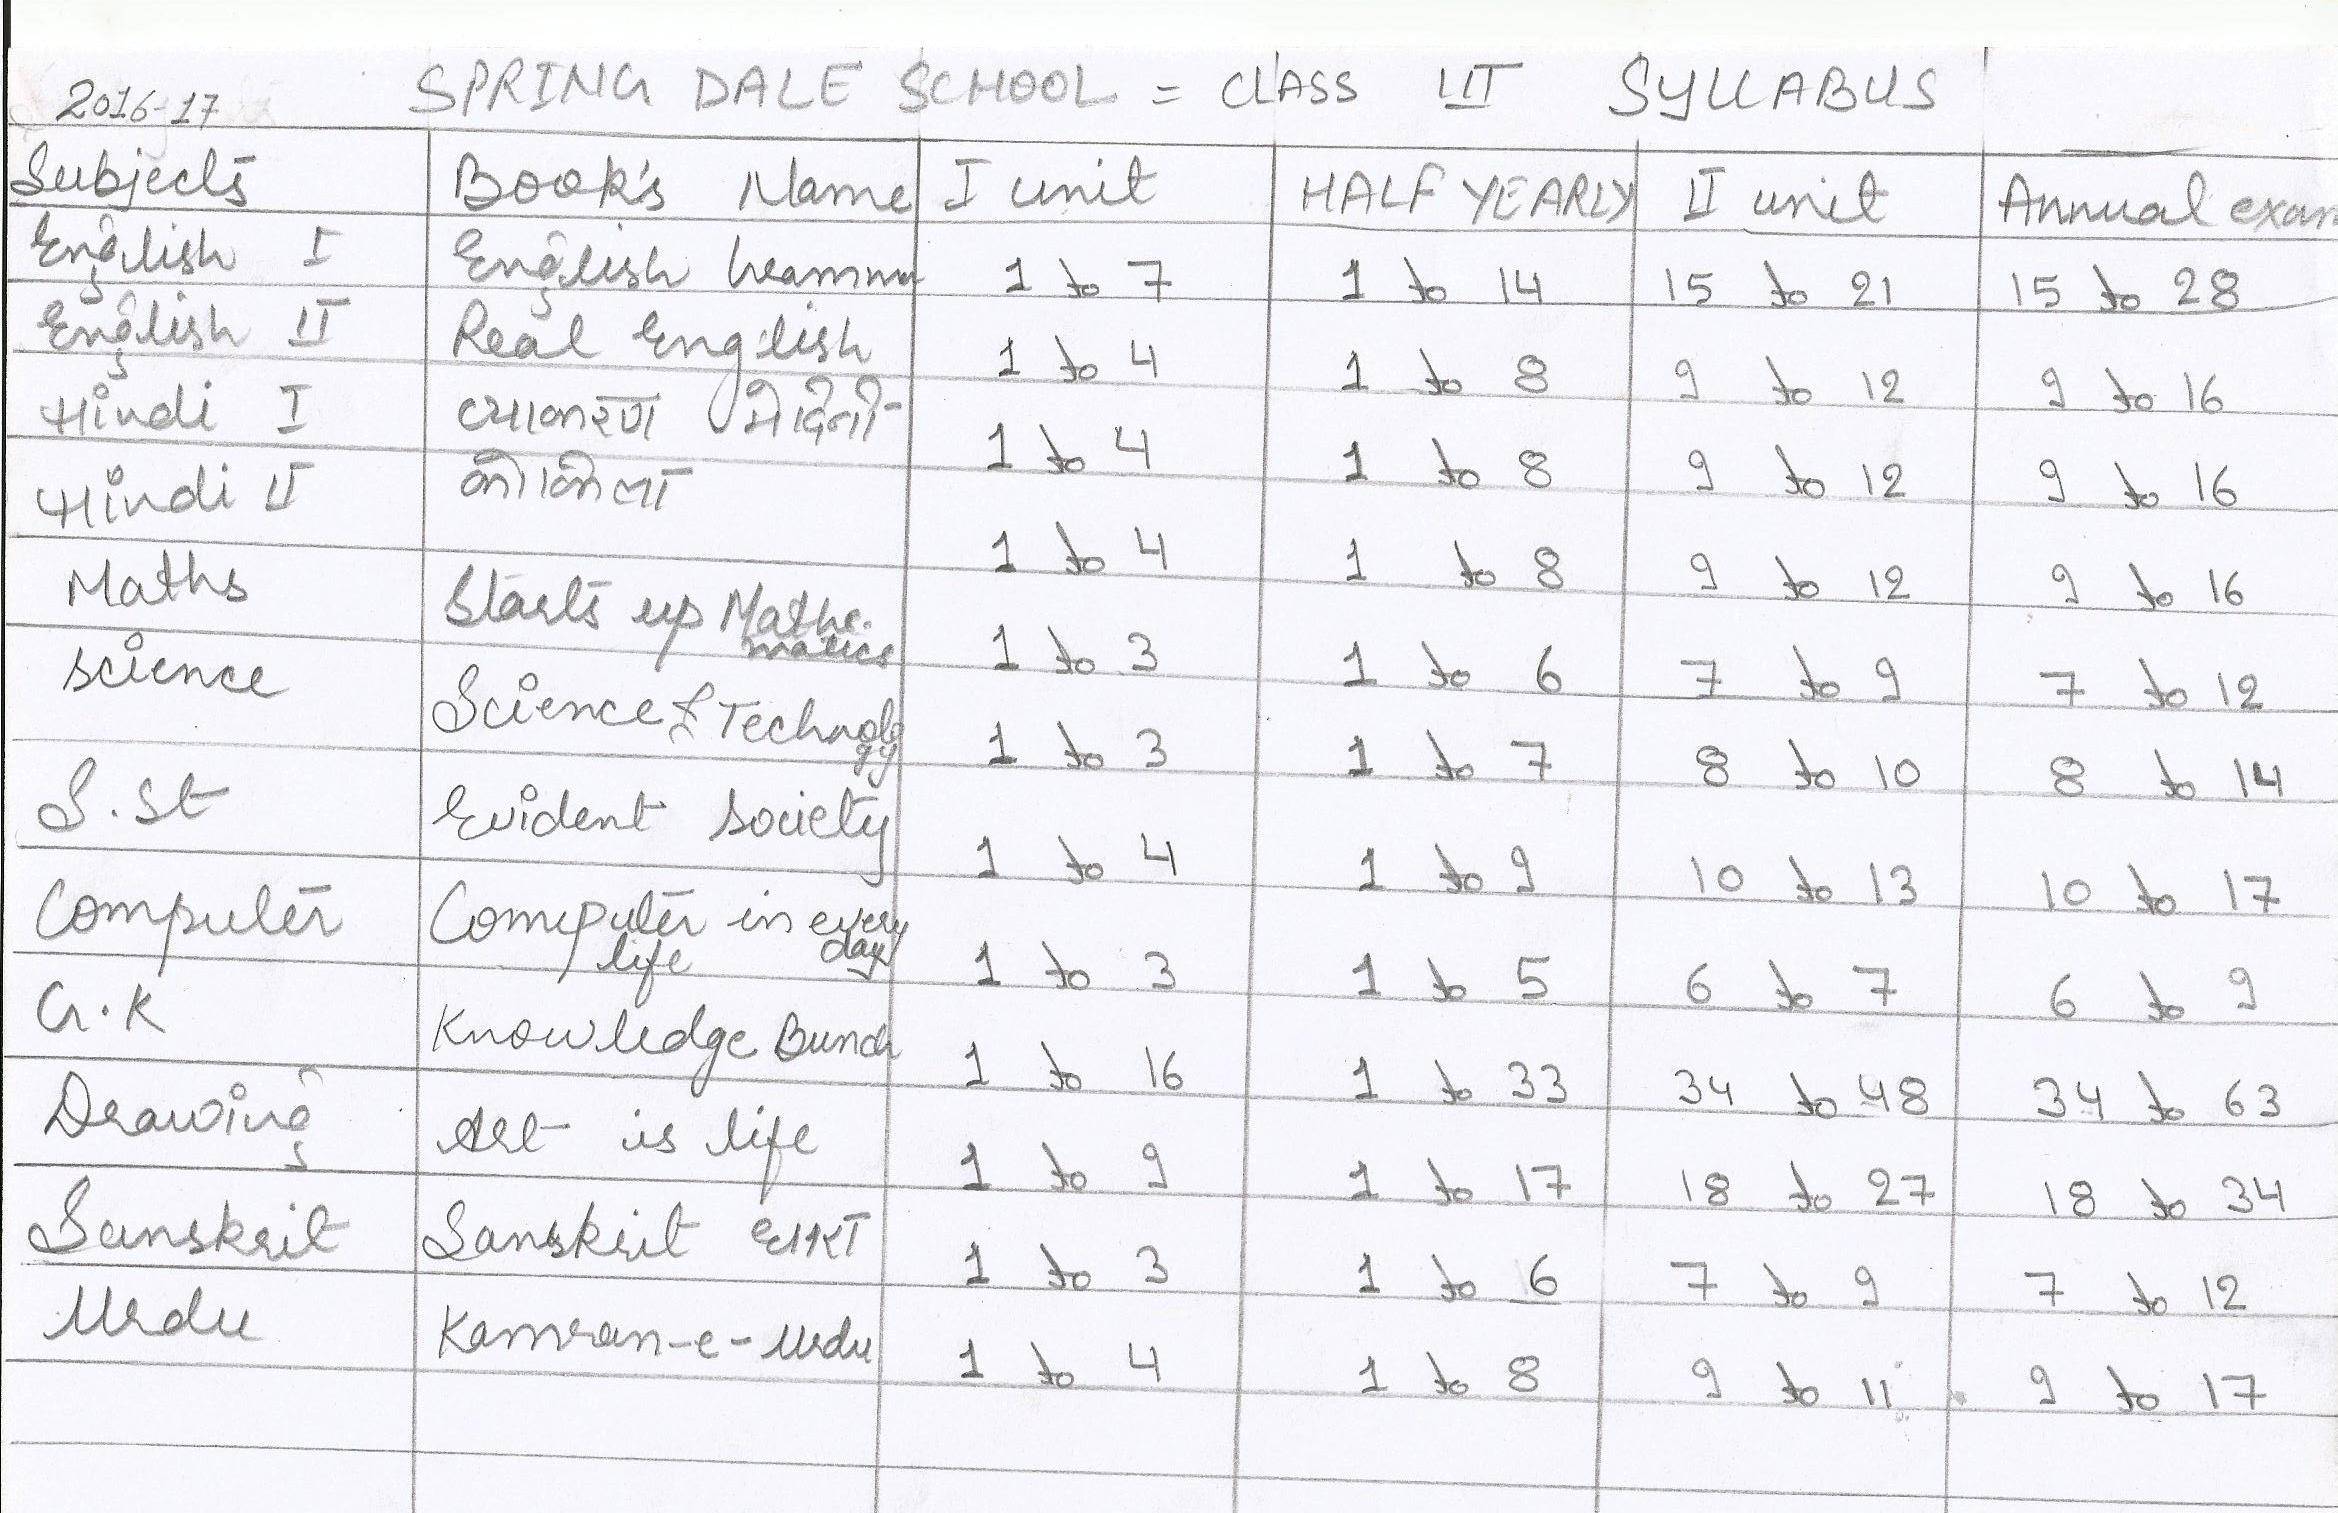 2016-17 SPRING DALE SCHOOL = CLASS III SYLLABUS
Subjects Book's Name I unit HALF YEARLY II unit Annual exam
English I English Grammar 1 to 7 1 to 14 15 to 21 15 to 28
English II Real English 1 to 4 1 to 8 9 to 12 9 to 16
Hindi I व्याकरण 1 to 4 1 to 8 9 to 12 9 to 16
Hindi II कोकिला 1 to 4 1 to 8 9 to 12 9 to 16
Maths Starts up Mathe-
matics 1 to 3 1 to 6 7 to 9 7 to 12
Science Science & Technolo
gy 1 to 3 1 to 7 8 to 10 8 to 14
S.St Evident Society 1 to 4 1 to 9 10 to 13 10 to 17
Computer Computer in every
day life 1 to 3 1 to 5 6 to 7 6 to 9
G.K Knowledge Bunch 1 to 16 1 to 33 34 to 48 34 to 63
Drawing Art is life 1 to 9 1 to 17 18 to 27 18 to 34
Sanskrit Sanskrit धारा 1 to 3 1 to 6 7 to 9 7 to 12
Urdu Kamran-e-Urdu 1 to 4 1 to 8 9 to 11 9 to 17